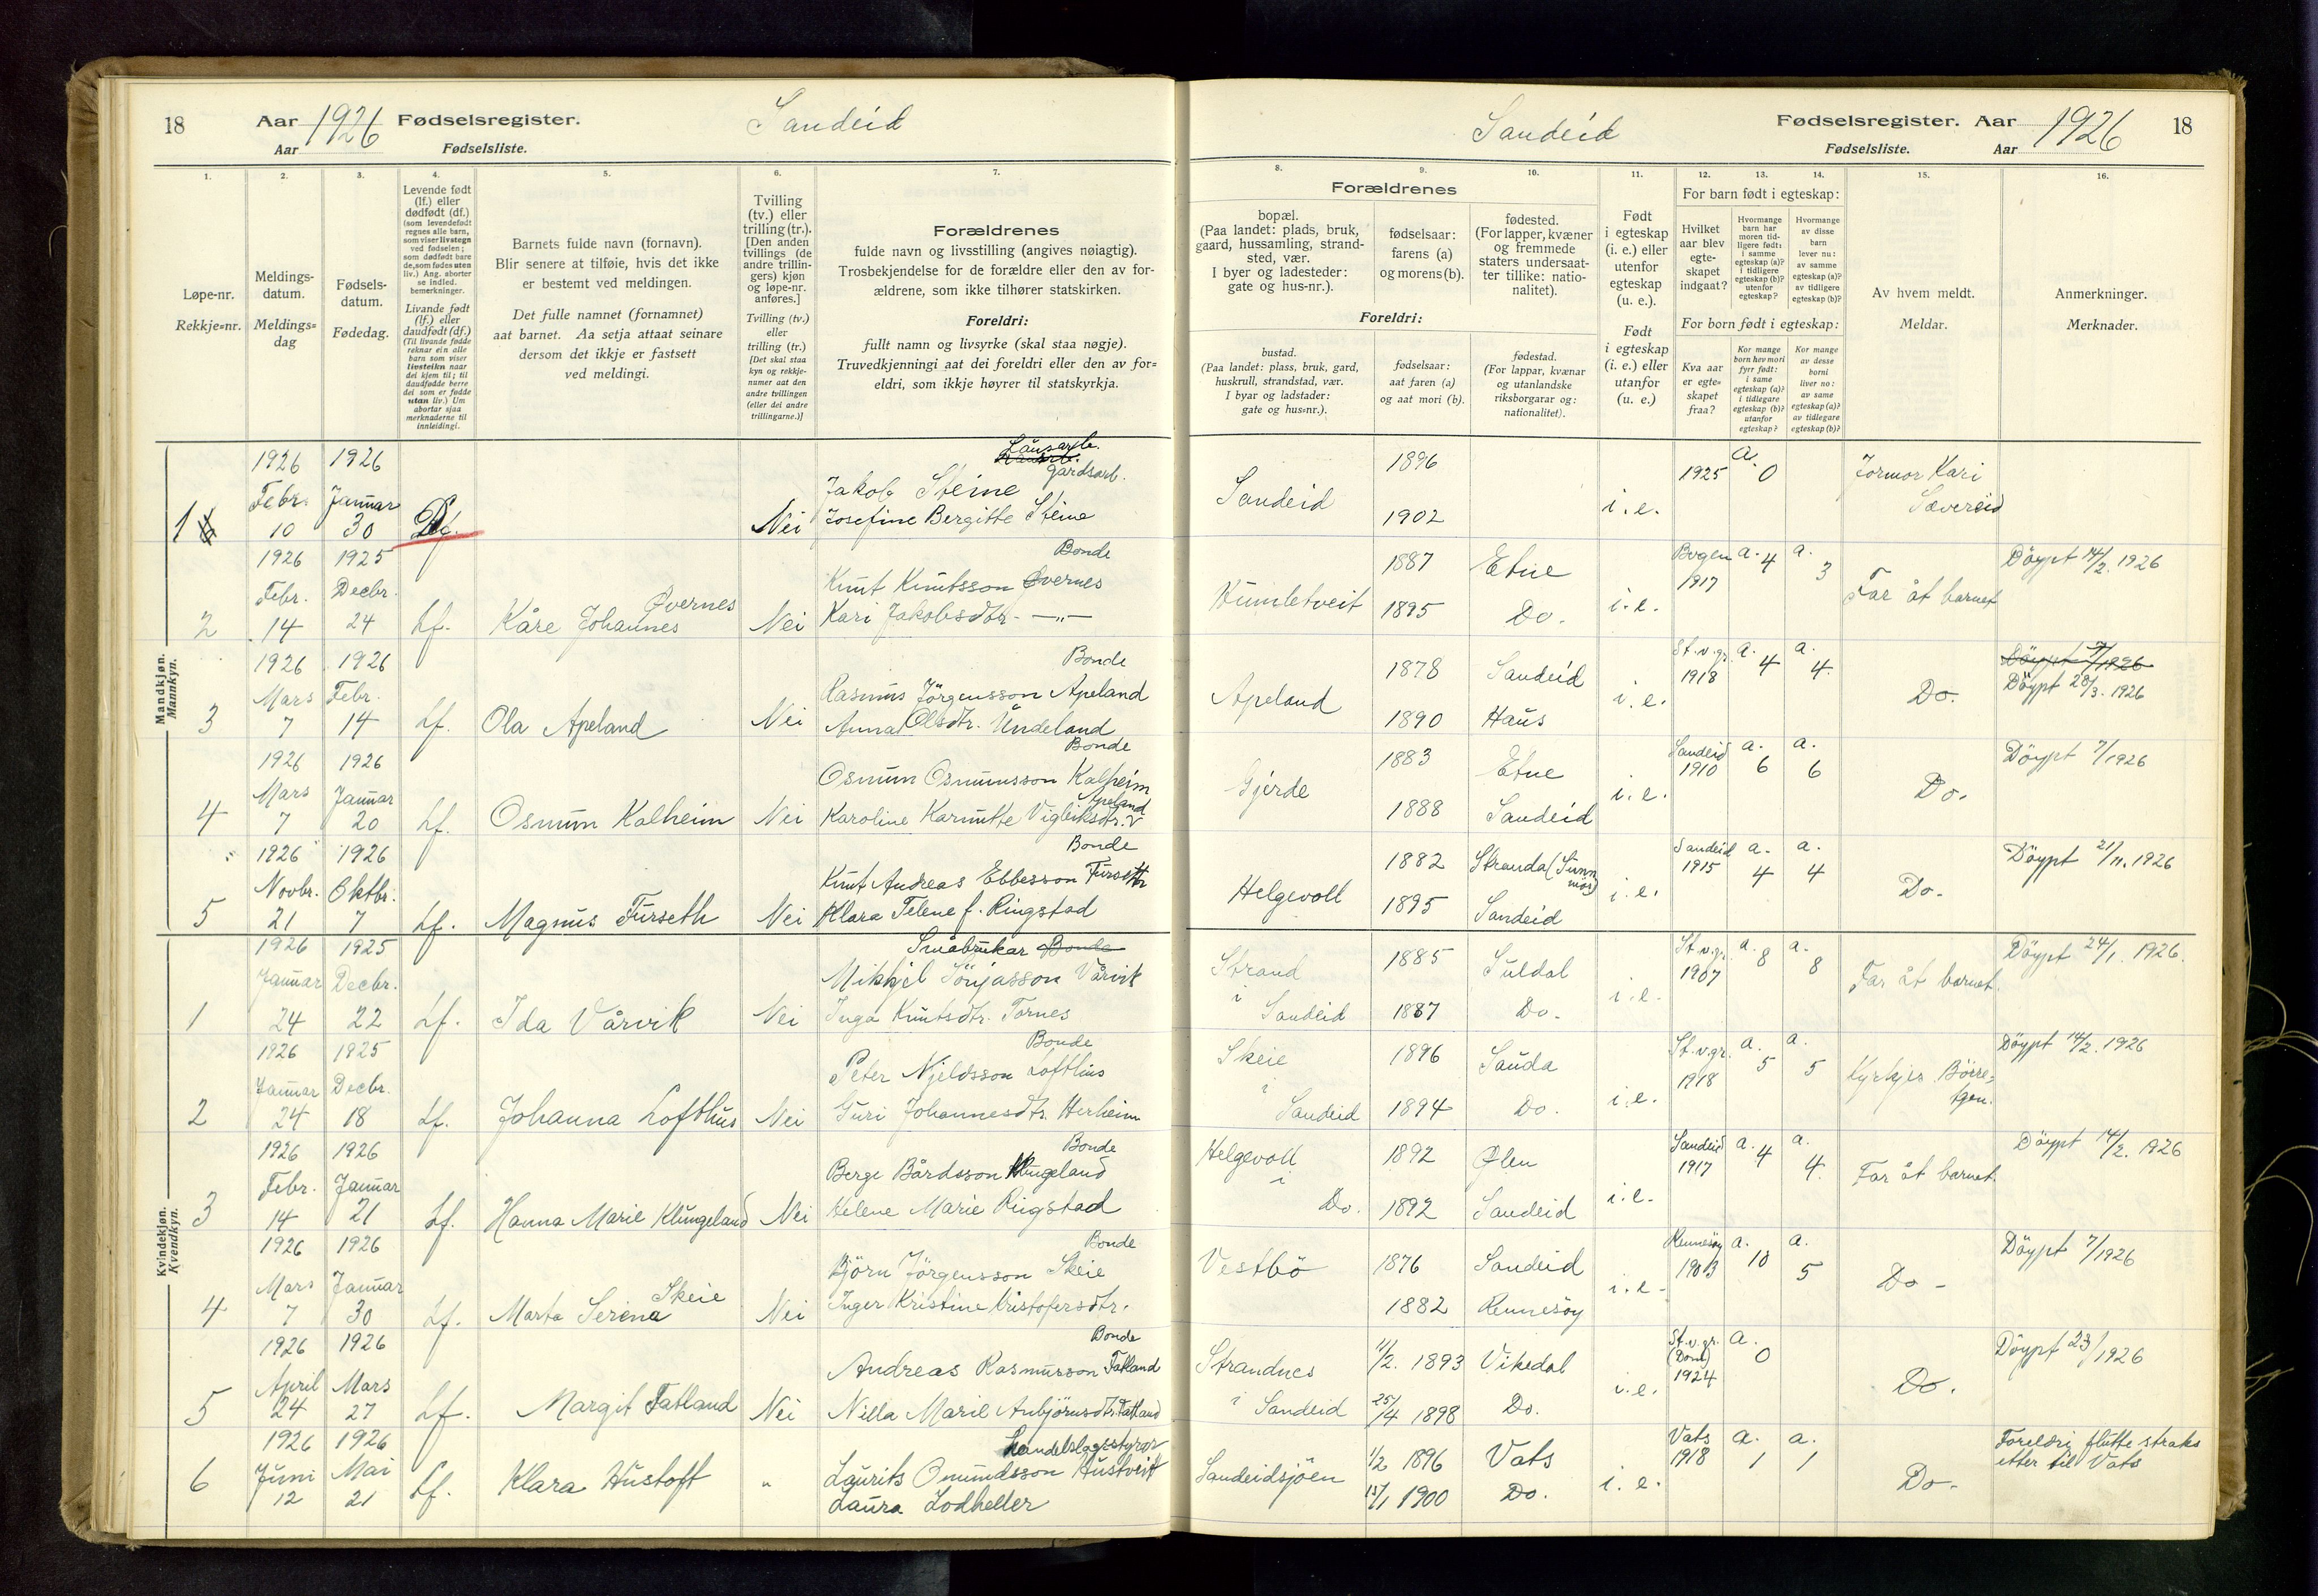 18
Aar 1926 Fødselsregister. Sandeid
Aar Fødselsliste.
1. 2. 3. 4. 5. 6. 7.
Løpe-nr.
Rekkje=nr.
Meldings-
datum.
Meldings=
dag
Fødsels-
datum.
Fødedag.
Levende født
(lf.) eller
dødfødt (df.)
(som levendefødt
regnes alle barn,
som viser livstegn
ved fødselen;
som dødfødt bare
de, som fødes uten
liv.) Ang. aborter
se indled.
bemerkninger.
Livande født
(lf.) eller
daudfødt (df.)
(Til livande fødde
reknar ein alle
barn som viser
livsteikn naar
dei kjem til; til
daudfødde berre
dei som er fødde
utan liv.) Um
abortar sjaa
merknaderne til
innleidingi.
Barnets fulde navn (fornavn).
Blir senere at tilføie, hvis det ikke
er bestemt ved meldingen.
Det fulle namnet (fornamnet)
aat barnet. Aa setja attaat seinare
dersom det ikkje er fastsett
ved meldingi.
Tvilling
(tv.) eller
trilling (tr.).
[Den anden
tvillings (de
andre trillin-
gers) kjøn
og løpe-nr.
anføres.]
Tvilling (tv.)
eller
trilling (tr.)
[Det skal staa
kyn og rekkje-
numer aat den
andre tvillingen
(eller dei andre
trillingarne.)]
Forældrenes
fulde navn og livsstilling (angives nøiagtig).
Trosbekjendelse for de forældre eller den av for-
ældrene, som ikke tilhører statskirken.
Foreldri:
fullt namn og livsyrke (skal staa nøgje).
Truvedkjenningi aat dei foreldri eller den av for=
eldri, som ikkje høyrer til statskyrkja.
Mandkjøn.
Mannkyn.
1926 1926
Febr. Januar gardsarb.
Jakob Steine
1 10 30 Df. Nei Josefine Bergitte Steine
1926 1925 Bonde
Febr. Decbr. Knut Knutsson Øvernes
Øvernes
2 14 24 Lf. Kåre Johannes Nei Kari Jakobsdtr. —"—
1926 1926 Bonde
Mars Febr. Rasmus Jörgensson Apeland
3 7 14 Lf. Ola Apeland Nei Anna Olsdtr. Undeland
1926 1926 Bonde
Mars Januar Osmun Osmunsson Kalheim
Apeland
4 7 20 Lf. Osmun Kalheim Nei Karoline Karnutte Vigleiksdtr.
1926 1926 Bonde
Novbr. Oktbr. Knut Andreas Ebbesson Furseth
5 21 7 Lf. Magnus Furseth Nei Klara Telene f. Ringstad
Kvindekjøn.
Kvendkyn.
1926 1925 Småbrukar Bonde
Januar Decbr. Mikkjel Sönjasson Vårvik
1 24 22 Lf. Ida Vårvik Nei Inga Knutsdtr. Tornes
1926 1925 Bonde
Januar Decbr. Peter Njeldsson Lofthus
2 24 18 Lf. Johanna Lofthus Nei Guri Johannesdtr. Herheim
1926 1926 Bonde
Febr. Januar Berge Bårdsson Klungeland
3 14 21 Lf. Hanna Marie Klungeland Nei Helene Marie Ringstad
1926 1926 Bonde
Mars Januar Björn Jörgensson Skeie
Skeie
4 7 30 Lf. Marta Serena Nei Inger Kristine Kristofersdtr.
1926 1926 Bonde
April Mars Andreas Rasmusson Fatland
5 24 27 Lf. Margit Fatland Nei Nilla Marie Anbjörnsdtr. Fatland
1926 1926 handelslagsstyrar
Juni Mai Laurits Omundsson Hustveit
6 12 21 Lf. Klara Hustoft " Laura Lodheller
Sandeid Fødselsregister. Aar 1926 18
Fødselsliste. Aar
8. 9. 10. 11. 12. 13. 14. 15. 16.
Forældrenes
bopæl.
(Paa landet: plads, bruk,
gaard, hussamling, strand-
sted, vær.
I byer og ladesteder:
gate og hus-nr.).
fødselsaar:
farens (a)
og morens (b).
fødested.
(For lapper, kvæner
og fremmede
staters undersaat-
ter tillike: natio-
nalitet).
Foreldri:
bustad.
(Paa landet: plass, bruk, gard,
huskrull, strandstad, vær.
I byar og ladstader:
gate og hus=nr.).
fødselsaar:
aat faren (a)
og aat mori (b).
fødestad.
(For lappar, kvænar
og utanlandske
riksborgarar og:
nationalitet).
Født
i egteskap
(i. e.) eller
utenfor
egteskap
(u. e.).
Født
i egteskap
(i. e.) eller
utanfor
(u. e.)
For barn født i egteskap:
Hvilket
aar blev
egte-
skapet
indgaat?
Hvormange
barn har
moren tid-
ligere født:
i samme
egteskap (a)?
i tidligere
egteskap (b)?
utenfor
egteskap?
Hvormange
av disse
barn
lever nu:
av samme
egteskap (a)?
av tidligere
egteskap (b)?
For born født i egteskap:
Kva aar
er egte-
skapet
fraa?
Kor mange
born hev mori
fyrr født:
i same
egteskap (a)?
i tidlegare
egteskap (b)?
utanfor
egteskap?
Kor mange
av desse
borni
liver no:
av same
egteskap (a)?
av tidlegare
egteskap (b)?
Av hvem meldt.
Meldar.
Anmerkninger.
Merknader.
Sandeid 1896 1902 i.e. 1925 a. 0 Jormor Kari
Sævereid
Humletveit 1887 Etne 1895 Do. i.e. 1917 a. 4 a. 3 Far åt barnet Döypt 14/2. 1926
Apeland 1878 Sandeid 1890 Haus i.e. St.v.gr. 1918 a. 4 a. 4. Do. Döypt 7/1926
Döypt 28/3. 1926
Gjerde 1883 Etne 1888 Sandeid i.e. Sandeid 1910 a. 6 a. 6 Do. Döypt 7/1926
Helgevoll 1882 Stranda (Sunn
mör) 1895 Sandeid i.e. Sandeid 1915 a. 4 a. 4 Do. Döypt 21/11. 1926
Strand
i
Sandeid 1885 Suldal 1887 Do. i.e. St.v.gr. 1907 a. 8 a. 8 Far åt barnet. Döypt 24/1. 1926.
Skeie
i
Sandeid 1896 Sauda 1894 Do. i.e. St.v.gr. 1918 a. 5 a. 5 Kyrkjes. Börre-
tzen. Döypt 14/2. 1926
Helgevoll
i
Do. 1892 Ølen 1892 Sandeid i.e. Sandeid 1917 a. 4 a. 4. Far åt barnet. Döypt 14/2. 1926
Vestbö 1876 Sandeid 1882 Rennesöy i.e. Rennesöy 1903 a. 10 a. 5 Do - Döypt 7/1926
Strandnes
i Sandeid 11/2. 1893 Vikedal 25/4 1898 Do. i.e. St.v.gr. (Dom) 1924 a. 0 Do. Döypt 23/1926
Sandeidsjöen 1/2 1896 Vats 15/1 1900 Do. i.e. Vats 1918 a. 1 a. 1 Do- Foreldri flutte straks
etter til Vats